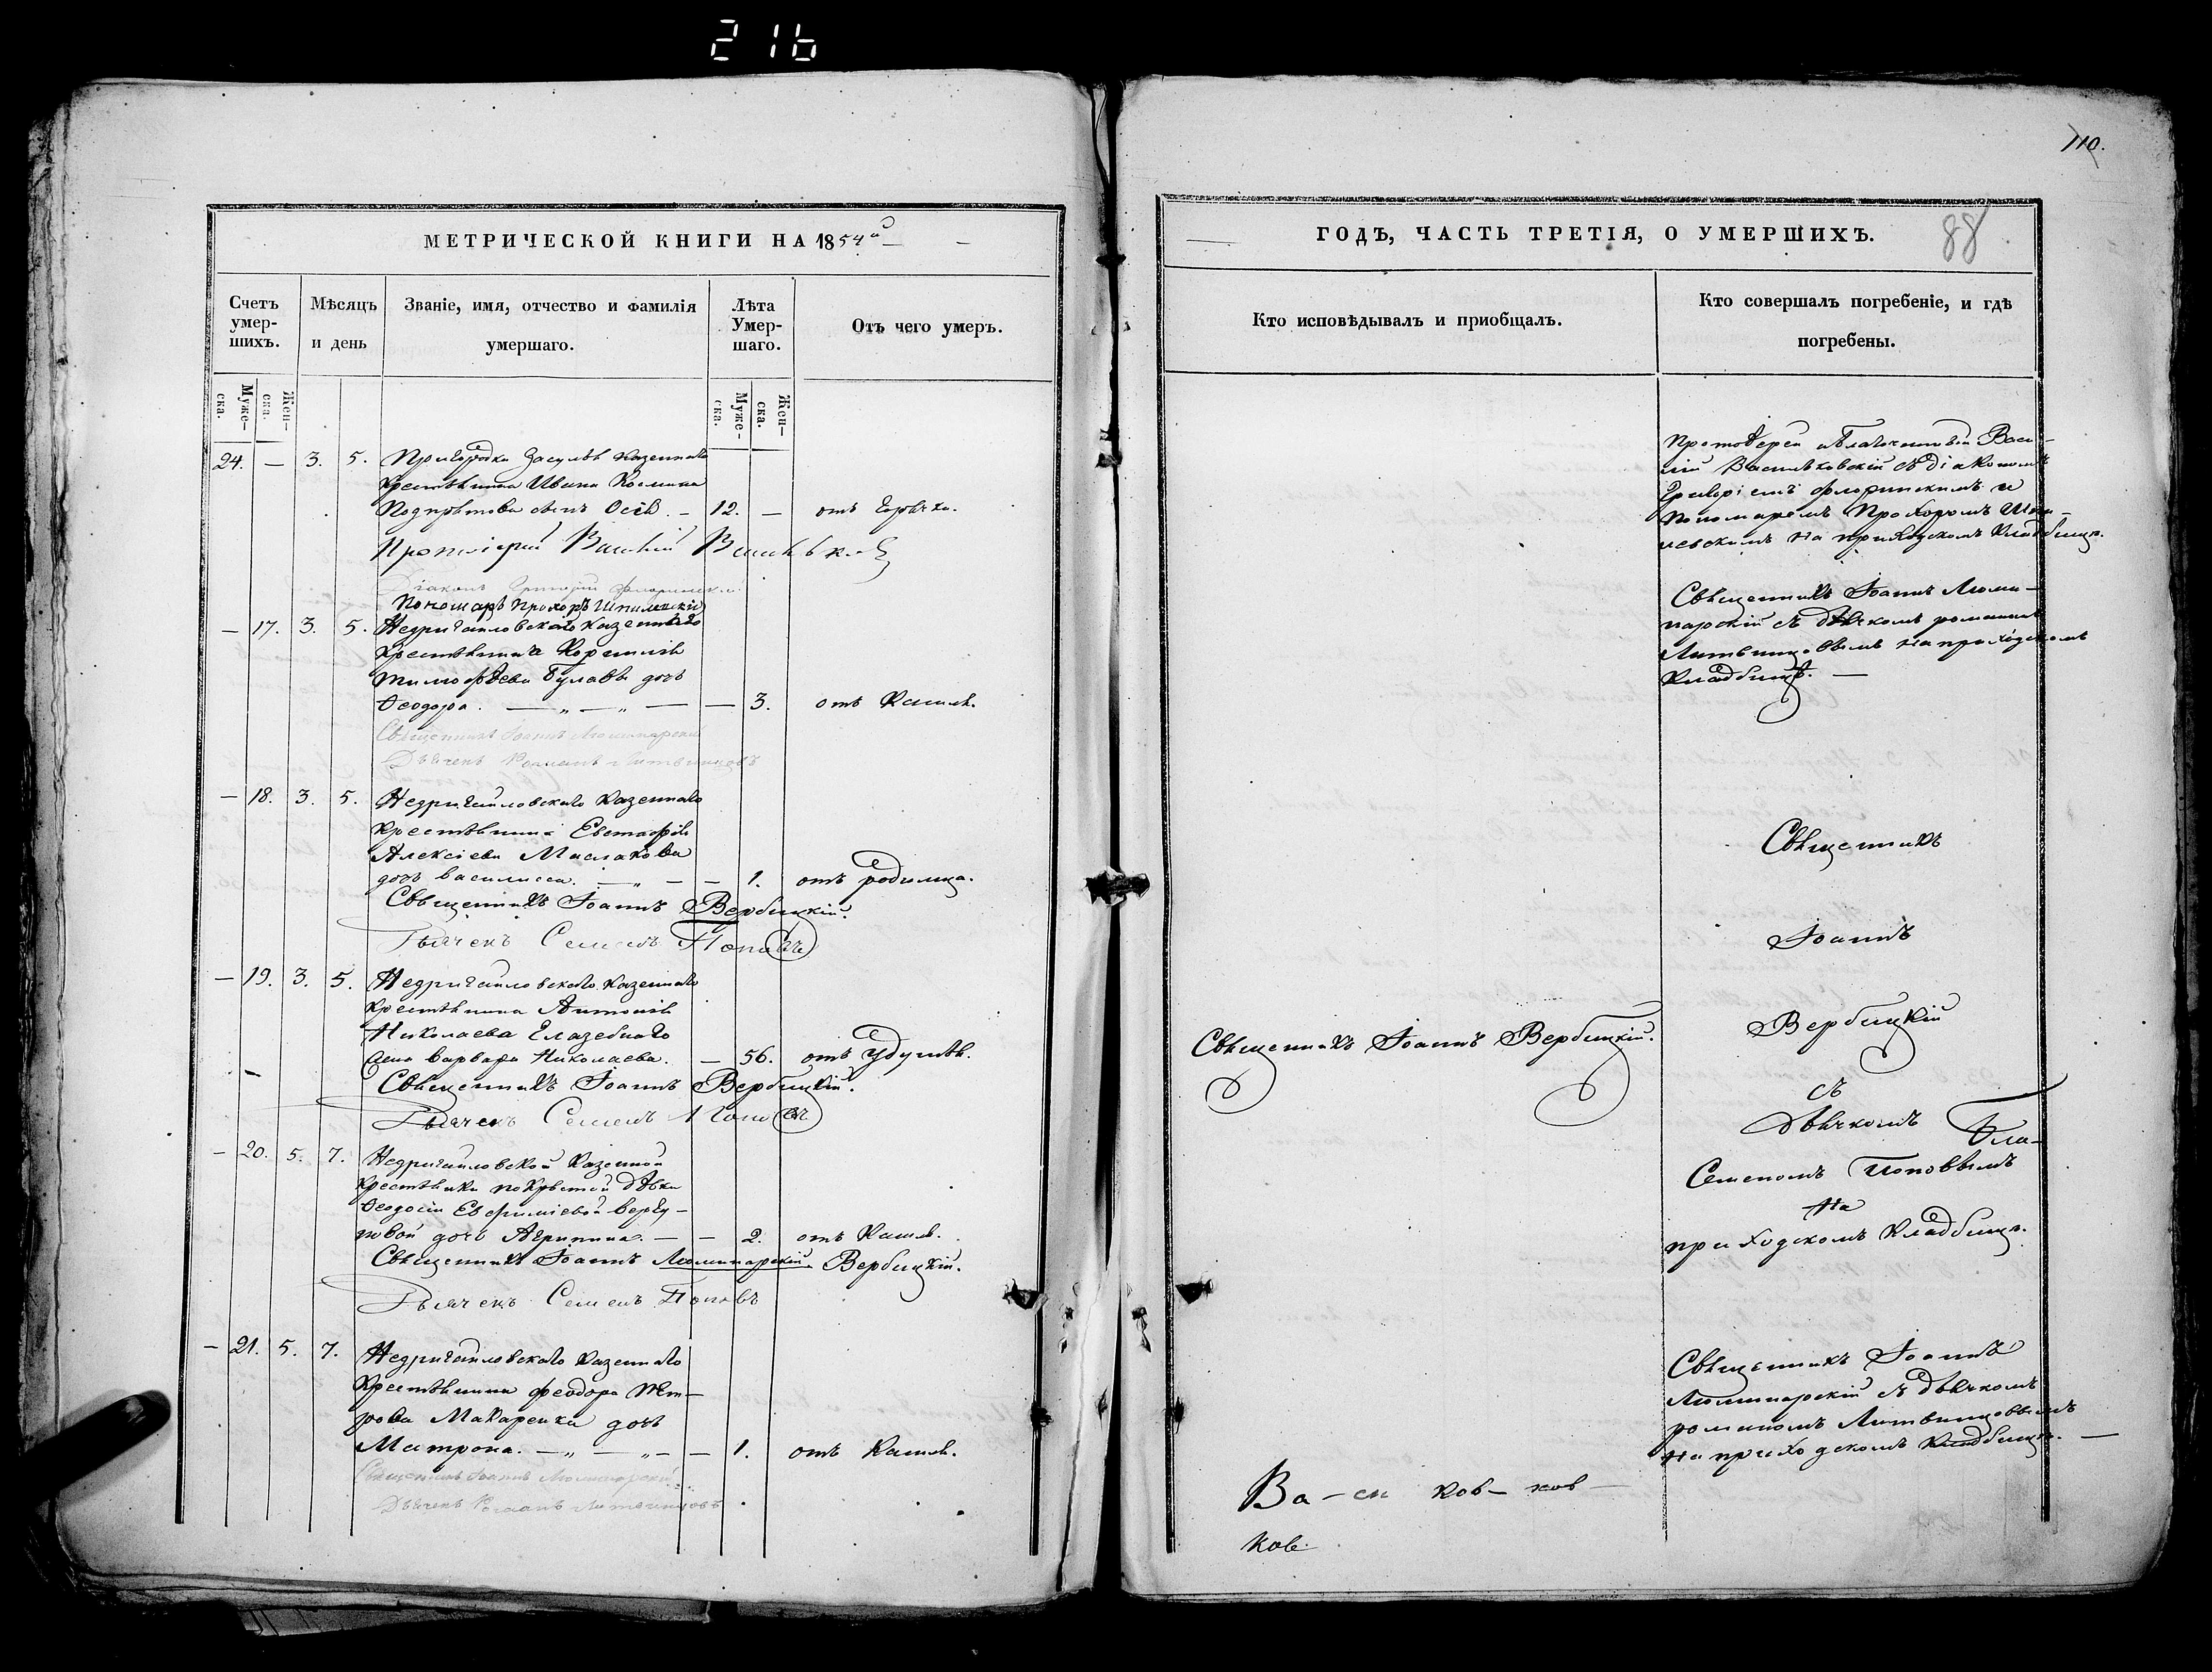 216
110.
МЕТРИЧЕСКОЙ КНИГИ НА 1854й
ГОДЪ, ЧАСТЬ ТРЕТІЯ, О УМЕРШИХЪ.
88
Счетъ умер-шихъ.
Мѣсяцъ и день
Званіе, имя, отчество и фамилія умершаго.
Лѣта Умер-шаго.
Отъ чего умеръ.
Кто исповѣдывалъ и пріобщалъ.
Кто совершалъ погребеніе, и гдѣ погребены.
Муже-ска.
Жен-ска.
Муже-ска.
Жен-ска.
24. — 3. 5. Пригородка Засулья казеннаго
крестьянина Ивана Космина
сынъ Осій. — 12. —
Протоіерей Василій
Діаконъ Григорій Флоринскій
Пономарь Прохоръ Шпилевскій
Протоіерей Васи-
лій Васильковскій съ діакономъ
Григоріемъ Флоринскимъ и
Пономаремъ Прохоромъ Шпи-
левскимъ на приходскомъ кладбищѣ.
— 17. 3. 5. Недригайловскаго казеннаго
крестьянина Корнилія
Тимофѣева Булавы дочь
Феодора. — „ — „ — — 3. отъ кашля.
Священникъ Іоаннъ Люминарскій
Дьячекъ Романъ Литвинцовъ
Священникъ Іоаннъ Люми-
нарскій съ дьячкомъ Романомъ
Литвинцовымъ на приходскомъ
кладбищѣ. —
— 18. 3. 5. Недригайловскаго казеннаго
крестьянина Евстафія
Алексіева Маслакова
дочь Василисса. — „ — — 1. отъ родимца.
Священникъ Іоаннъ Вербицкій.
Дьячекъ Семенъ Поповъ
— 19. 3. 5. Недригайловскаго казеннаго
крестьянина Антонія
Николаева Глазебнаго
жена Варвара Николаева. — 56. отъ удушья.
Священникъ Іоаннъ Вербицкій.
Дьячекъ Семенъ Поповъ
Священникъ Іоаннъ Вербицкій.
Священникъ
Іоаннъ
Вербицкій
съ
Дьячкомъ
Семеномъ Поповымъ
на
приходскомъ кладбищѣ.
— 20. 5. 7. Недригайловской казенной
крестьянки покрытой дѣвки
Феодосіи Евфиміевой
дочь Агрипина. — — 2. отъ кашля.
Священникъ Іоаннъ Люминарскій. Вербицкій.
Дьячекъ Семенъ Поповъ
— 21. 5. 7. Недригайловскаго казеннаго
крестьянина Феодора Пет-
рова Макаренка дочь
Матрона. — „ — „ — — 1. отъ кашля.
Священникъ Іоаннъ Люминарскій
Дьячекъ Романъ Литвинцовъ
Священникъ Іоаннъ
Люминарскій съ дьячкомъ
Романомъ Литвинцовымъ
на приходскомъ кладбищѣ. —
Ва — си ков — ков —
ков.